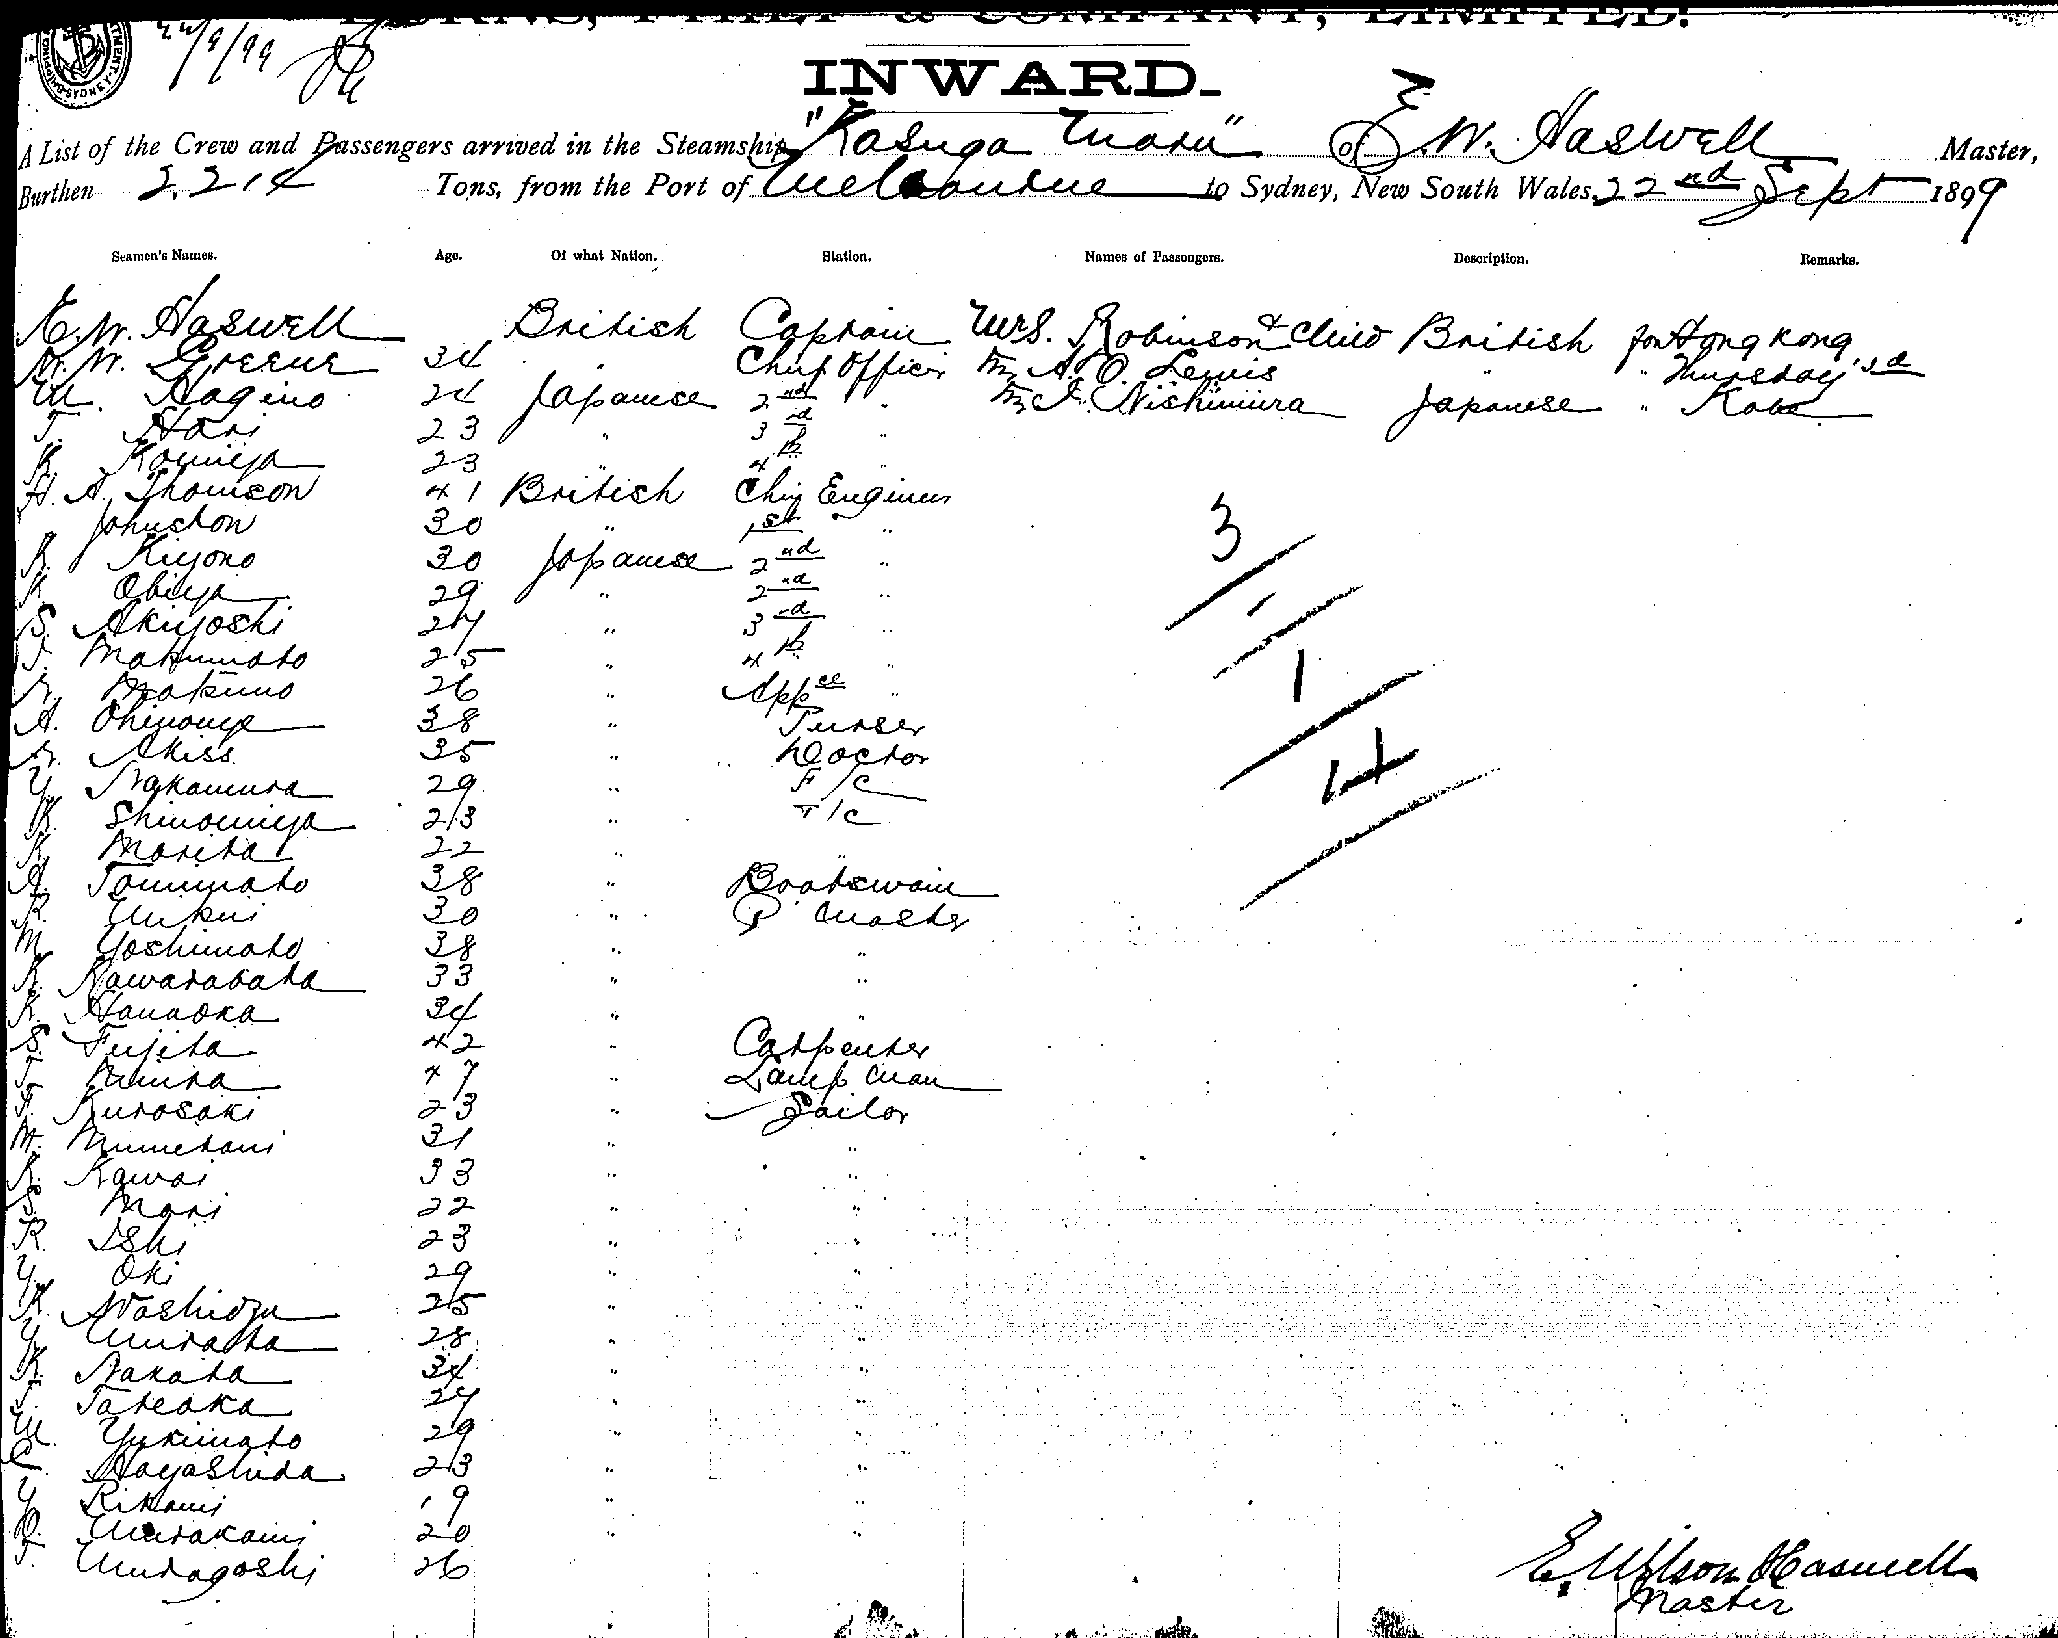 BURNS, PHILP & COMPANY, LIMITED.
22/9/99
INWARD.
A List of the Crew and Passengers arrived in the Steamship "Kasuga Maru" of E. W. Haswell Master,
Burthen 2214 Tons, from the Port of Melbourne to Sydney, New South Wales, 22nd Sept 1899
Seamen's Names. Age. Of what Nation. Station. Names of Passengers. Description. Remarks.
E. W. Haswell British Captain Mrs. Robinson & Child British for Hong Kong
W. Greene 34 " Chief Officer Mr A. O. Lewis " " Thursday Isd
M. Hagino 24 Japanese 2nd " Mr I. Nishimura Japanese " Kobe
T. Hori 23 " 3rd "
K. Kamiya 23 " 4th "
H. A. Thomson 41 British Chief Engineer
Johnston 30 " 1st "
K. Kiyono 30 Japanese 2nd "
K. Obiya 29 " 2nd "
S. Akiyoshi 27 " 3rd "
T. Makimoto 25 " 4th "
26 " Appce "
A. 38 " Purser
Akiss 35 " Doctor
Y. Nakamura 29 " F/C
K. Shinomiya 23 " T/C
K. Morita 22 " "
A. Tomimoto 38 " Boatswain
K. Mukui 30 " Q Master
M. Yoshimoto 38 " "
K. Kawarabata 33 " "
K. Hanaoka 34 " "
S. Fujita 42 " Carpenter
T. Miura 47 " Lamp Man
T. Kurosaki 23 " Sailor
M. Munetani 31 " "
K. Kawai 33 " "
S. Mori 22 " "
R. Ishi 23 " "
Y. Oki 29 " "
K. Washidzu 25 " "
Y. Murata 28 " "
K. Nakata 34 " "
T. Tateoka 27 " "
M. Yukimoto 29 " "
C. Hayashida 23 " "
Y. Rikami 19 " "
Murakami 20 " "
T. Muragoshi 26
3
1
1
4
E. Wilson Haswell
Master